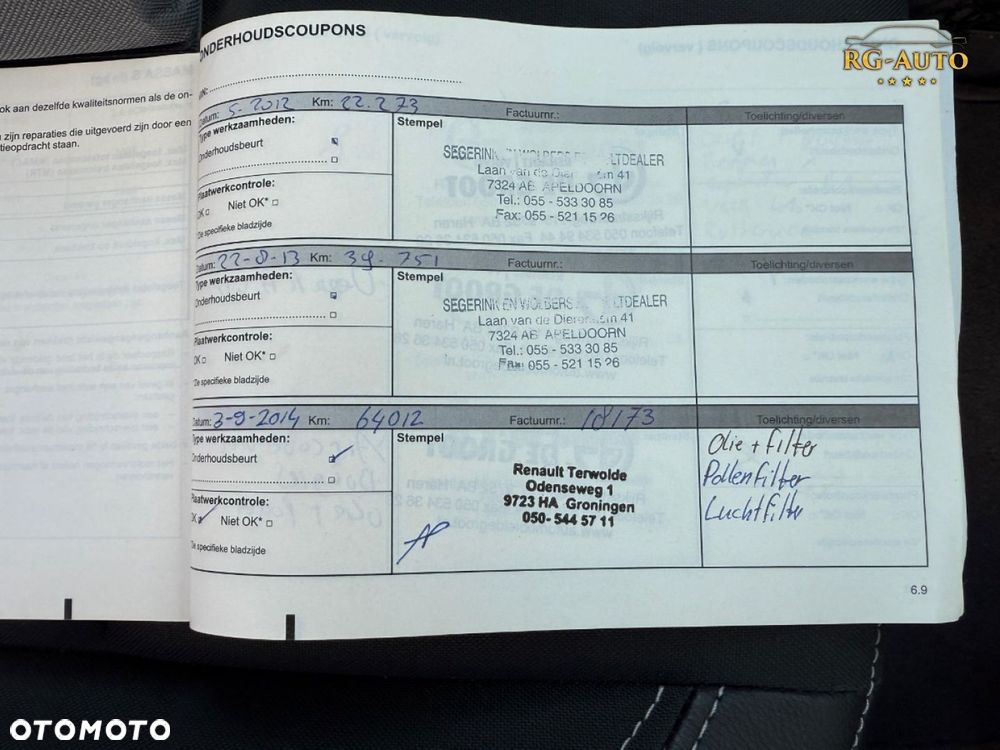 ONDERHOUDSCOUPONS
RG-AUTO
ok aan dezelfde kwaliteitsnormen als de on-
zijn reparaties die uitgevoerd zijn door een
tieopdracht staan.
VIN:
Datum: 5-2012 Km: 22.273 Factuurnr.: Toelichting/diversen
Type werkzaamheden: Stempel
Onderhoudsbeurt
SEGERINK EN WOLBERS LTDEALER
Laan van de Dieren 41
7324 AB APELDOORN
Tel.: 055 - 533 30 85
Fax: 055 - 521 15 26
Plaatwerkcontrole:
OK Niet OK*
*De specifieke bladzijde
Datum: 22-8-13 Km: 39.751 Factuurnr.: Toelichting/diversen
Type werkzaamheden: Stempel
Onderhoudsbeurt
SEGERINK EN WOLBERS LTDEALER
Laan van de Dieren 41
7324 AB APELDOORN
Tel.: 055 - 533 30 85
Fax: 055 - 521 15 26
Plaatwerkcontrole:
OK Niet OK*
*De specifieke bladzijde
Datum: 3-9-2014 Km: 64012 Factuurnr.: 18173 Toelichting/diversen
Type werkzaamheden: Stempel
Onderhoudsbeurt
Renault Terwolde
Odenseweg 1
9723 HA Groningen
050-544 57 11
Olie + filter
Pollenfilter
Luchtfilter
Plaatwerkcontrole:
OK Niet OK*
*De specifieke bladzijde
6.9
OTOMOTO